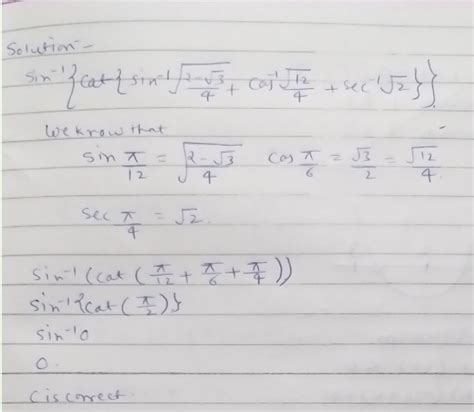 Solution -
sin⁻¹{cat{sin⁻¹√(2-√3/4) + cos⁻¹√12/4 + sec⁻¹√2}}
We know that
sin π/12 = √(2-√3/4) cos π/6 = √3/2 = √12/4.
sec π/4 = √2.
sin⁻¹(cat(π/12 + π/6 + π/4))
sin⁻¹{cat(π/2)}
sin⁻¹0
0.
C is correct.